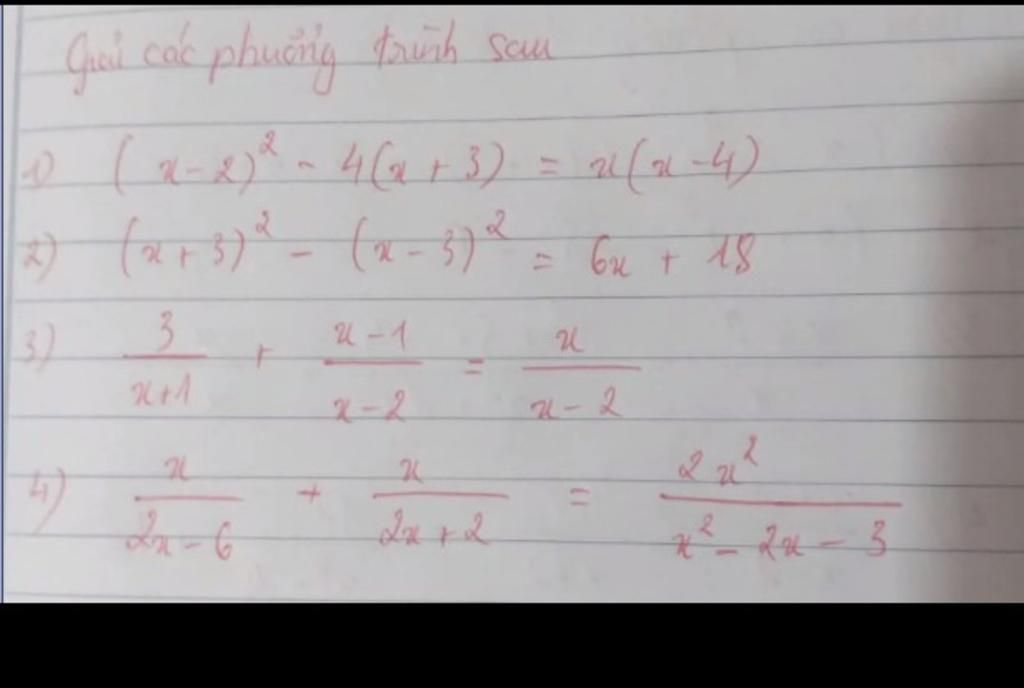 Giải các phương trình sau
1) (x-2)² - 4(x+3) = x(x-4)
2) (x+3)² - (x-3)² = 6x + 18
3) 3/(x+1) + (x-1)/(x-2) = x/(x-2)
4) x/(2x-6) + x/(2x+2) = 2x²/(x²-2x-3)